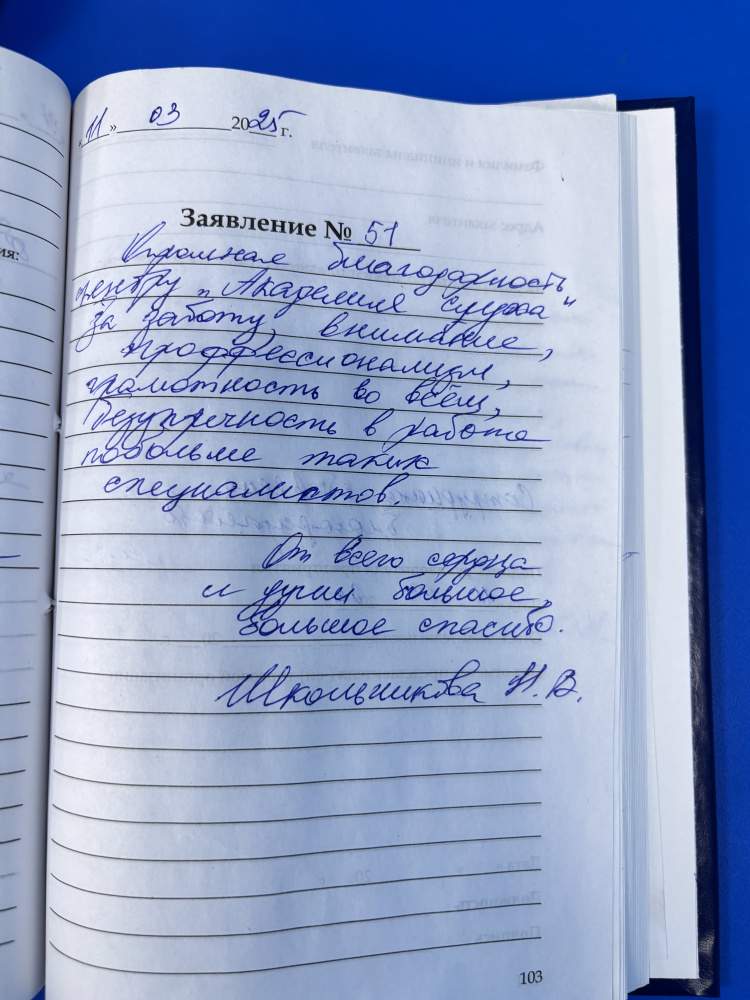 «11» 03 2025 г.
Заявление № 51
Огромная благодарность
центру „Академия слуха"
за заботу, внимание,
проффессионализм,
грамотность во всём,
безупречность в работе
побольше таких
специалистов.
От всего сердца
и души большое,
большое спасибо.
Школьникова Н. В.
103
ия: